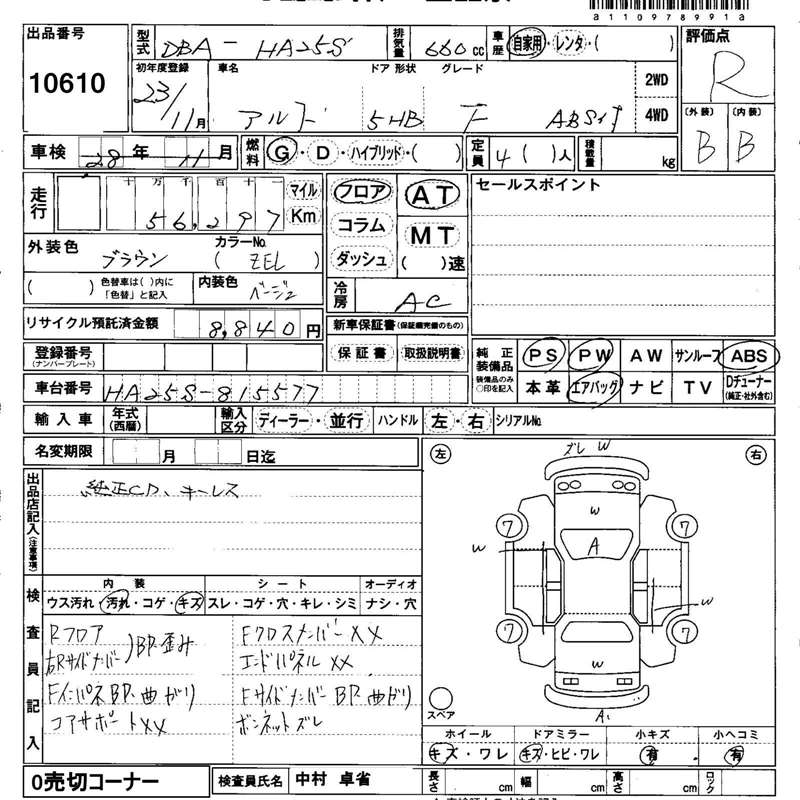 a110978991a
出品番号
10610
型式 DBA-HA25S 排気量 660cc 車歴 自家用・レンタ・( )
評価点
R
初年度登録 車名 ドア 形状 グレード
23/11月 アルト 5HB F ABS付 2WD 4WD
(外装) (内装)
B B
車検 28年 11月 燃料 G・D・ハイブリッド・( ) 定員 4( )人 積載量 kg
走行 十万千百十一 マイル
56,297 Km
フロア AT
コラム MT
ダッシュ ( )速
セールスポイント
外装色 ブラウン カラーNo. ( ZEL )
( ) 色替車は( )内に「色替」と記入 内装色 ベージュ
冷房 AC
リサイクル預託済金額 8,840円
新車保証書(保証継続完備のもの)
保証書 取扱説明書
登録番号
(ナンバープレート)
純正装備品 PS PW AW サンルーフ ABS
装備品のみ○印を記入 本革 エアバッグ ナビ TV Dチューナー
(純正・社外含む)
車台番号 HA25S-815577
輸入車 年式(西暦) 輸入区分 ディーラー・並行 ハンドル 左・右 シリアルNo.
名変期限 月 日迄
出品店記入(注意事項)
純正CD、キーレス
左 右
ズレ W
W
7 7
W A
W
7 7
W
A1
スペア
検査員記入
内装 シート オーディオ
ウス汚れ・汚れ・コゲ・キズ スレ・コゲ・穴・キレ・シミ ナシ・穴
Rフロア
右Rサイドメンバー )BP歪み
FインパネBP曲がり
コアサポートXX
FクロスメンバーXX
エンドパネルXX
FサイドメンバーBP曲がり
ボンネットズレ
ホイール ドアミラー 小キズ 小ヘコミ
キズ・ワレ キズ・ヒビ・ワレ 有 有
0売切コーナー 検査員氏名 中村 卓省 長さ cm 幅 cm 高さ cm ロック